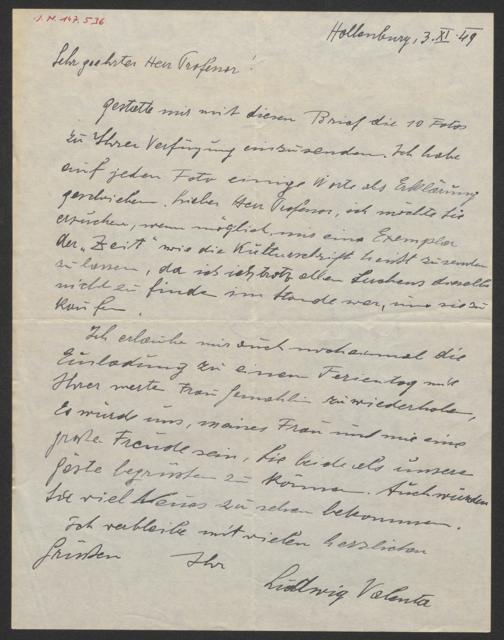 J.N. 147.536
Hollenburg, 3.XI.49
Sehr geehrter Herr Professor!
gestatte mir mit diesen Brief die 10 Fotos
zu Ihrer Verfügung einzusenden. Ich habe
auf jeden Foto einige Worte als Erklärung
geschrieben. Lieber Herr Professor, ich möchte Sie
ersuchen, wenn möglich, mir eine Exemplar
der "Zeit" wie die Kulturschrift heißt zusenden
zu lassen, da ich trotz allen Suchens dieselbe
nicht zu finden im Stande war, um sie zu
kaufen.
Ich erlaube mir auch nocheinmal die
Einladung zu einem Ferientag mit
Ihrer werten Frau Gemahlin zu wiederholen,
Es würde uns, meines Frau und mir eine
große Freude sein, Sie beide als unsere
Gäste begrüßen zu können. Auch würden
Sie viel Neues zu sehen bekommen.
Ich verbleibe mit vielen herzlichen
Grüßen Ihr
Ludwig Valenta